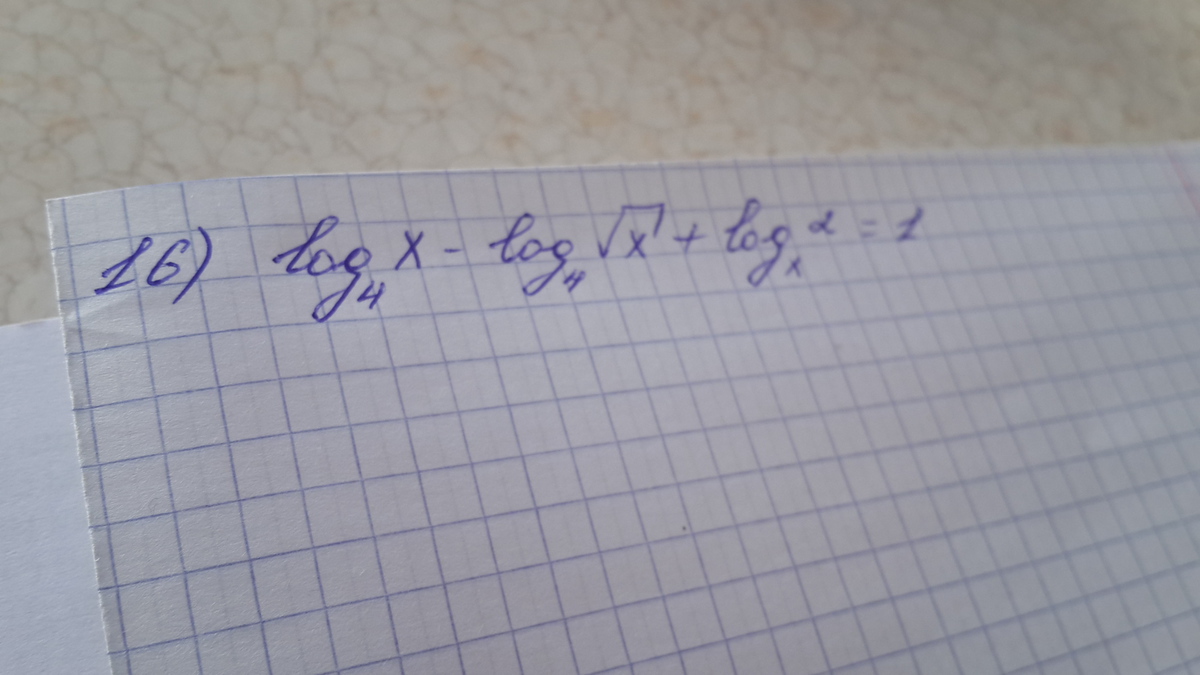 16) log₄ x - log₄ √x + logₓ 2 = 1